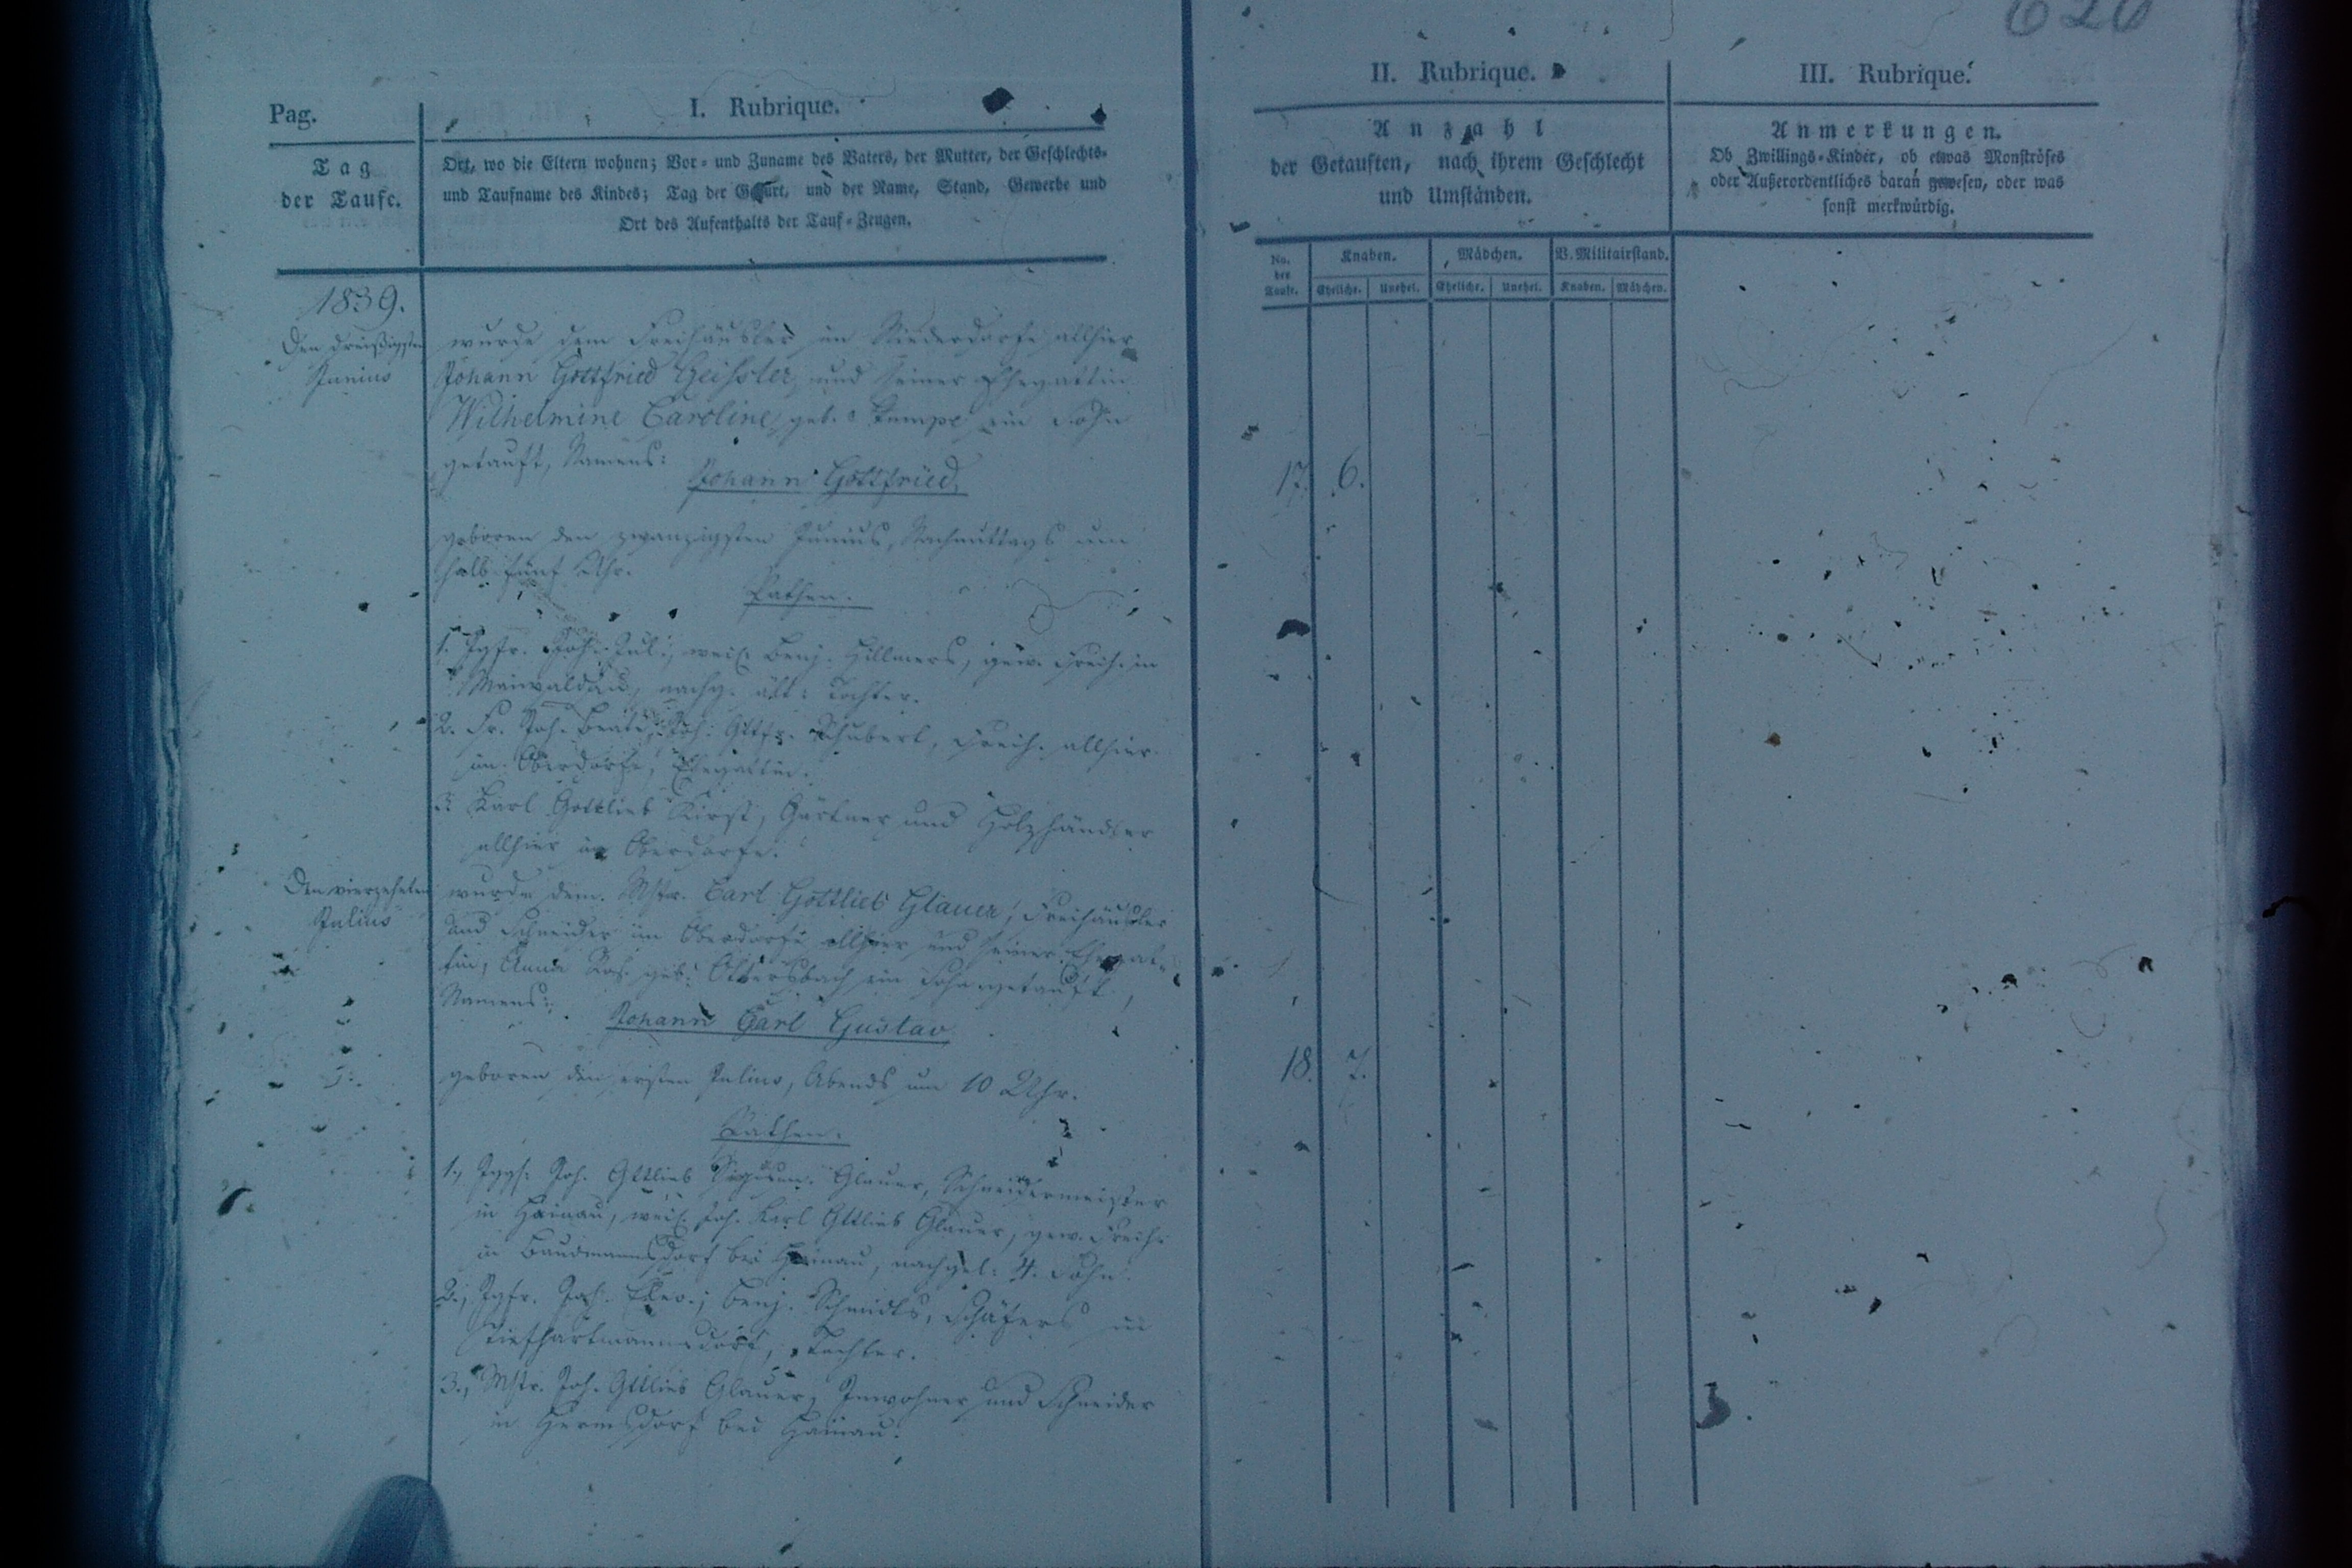 626
Pag.
I. Rubrique.
II. Rubrique.
III. Rubrique.
Tag
der Taufe.
Ort, wo die Eltern wohnen; Vor- und Zuname des Vaters, der Mutter, der Geschlechts-
und Taufname des Kindes; Tag der Geburt, und der Name, Stand, Gewerbe und
Ort des Aufenthalts der Tauf-Zeugen.
Anzahl
der Getauften, nach ihrem Geschlecht
und Umständen.
Anmerkungen.
Ob Zwillings-Kinder, ob etwas Monströses
oder Außerordentliches daran gewesen, oder was
sonst merkwürdig.
No. der Taufe.
Knaben.
Mädchen.
V. Militairstand.
Eheliche. Unehel. Eheliche. Unehel. Knaben. Mädchen.
1839.
Den dreißigsten
Junius
wurde dem Freihäusler im Niederdorfe allhier
Johann Gottfried Geissler, und seiner Ehegattin
Wilhelmine Caroline, geb. Rumpe ein Sohn
getauft, Namens:
Johann Gottfried.
17. 6.
geboren den zwanzigsten Junius, Nachmittags um
halb fünf Uhr.
Pathen.
1. Jgfr. Joh. Jul., weil. Benj. Hillmers, gew. Freih. in
Maiwaldau, nachg. ält. Tochter.
2. Fr. Joh. Beate, Joh. Gttfr. Schubert, Freih. allhier
im Oberdorfe, Ehegattin.
3. Karl Gottlieb Kirst, Gärtner und Holzhändler
allhier im Oberdorfe.
Den vierzehnten
Julius
wurde dem Mstr. Carl Gottlieb Glauer, Freihäusler
und Schneider im Oberdorfe allhier und seiner Ehegat-
tin, Anna Ros. geb. ein Sohn getauft,
Namens:
Johann Carl Gustav
18. 7.
geboren den ersten Julius, Abends um 10 Uhr.
Pathen.
1., Jggs. Joh. Gttlieb Sigism. Glauer, Schneidermeister
in Hainau, weil. Joh. Karl Gttlieb Glauer, gew. Freih.
in Baudmannsdorf bei Hainau, nachgel. 4. Sohn.
2., Jgfr. Joh. Eleo., Benj. Schmidts, Schäfers in
Tiefhartmannsdorf, Tochter.
3., Mstr. Joh. Gttlieb Glauer, Inwohner und Schneider
in Hermsdorf bei Hainau.